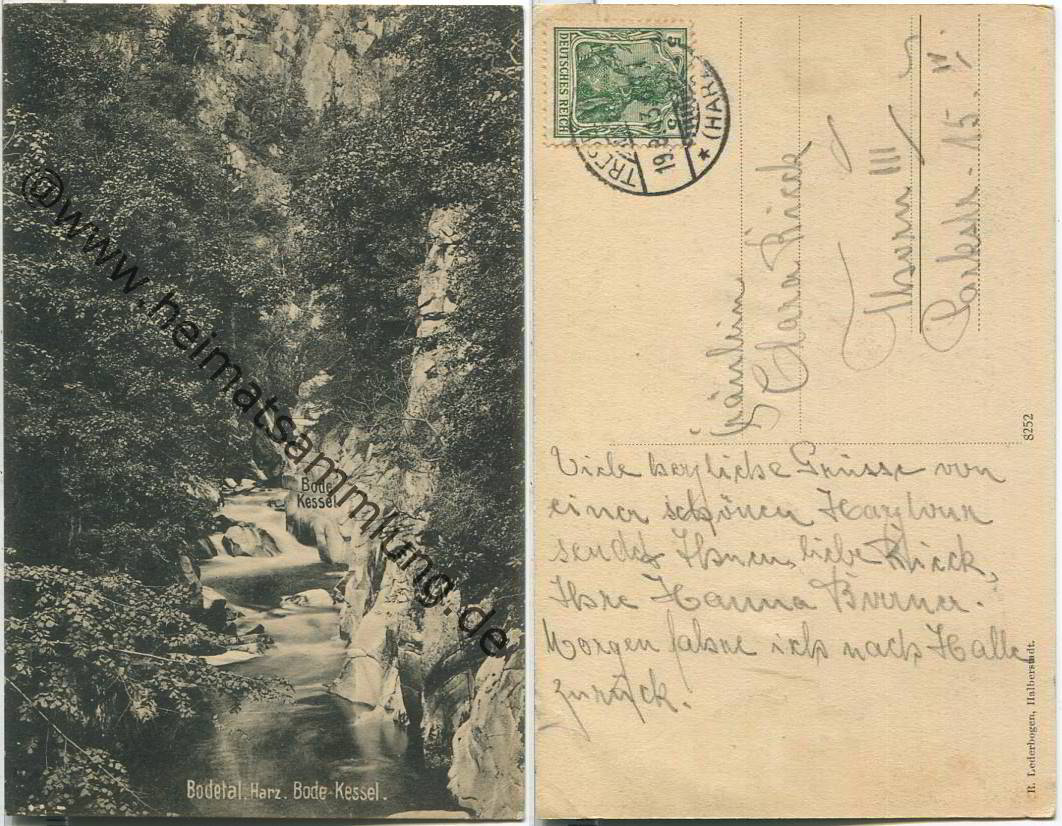 Bode
Kessel
Bodetal. Harz. Bode-Kessel.
©www.heimatsammlung.de
DEUTSCHES REICH
5
TRES
19.8.13
* (HARZ)
Fräulein
Clara Rieck
Thorn III
Parkstr. 15 IV.
8252
Viele herzliche Grüsse von
einer schönen Harztour
sendet Ihnen, liebe Rieck,
Ihre Hanna
Morgen fahre ich nach Halle
zurück.
R. Lederbogen, Halberstadt.